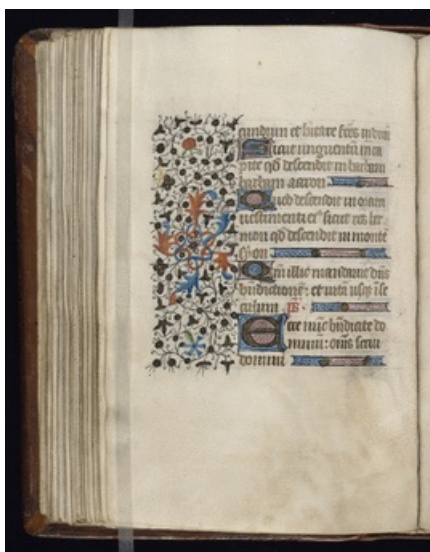 cundum et hitare frēs in unū
Sicut unguentū in ca
pite qd descendit in barbam
barbam aaron
Quod descendit in oram
vestimenti eꝰ sicut ros her
mon qd descendit in montē
syon
Qm illic mandavit dn̄s
bn̄dictionē : et vitā usqꝫ i se
culum . ps
Ecce nūc bn̄dicite do
minum : om̄s servi
domini